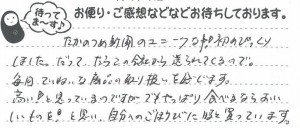 待ってま〜す♪
お便り・ご感想などなどお待ちしております。
たかのつめ新聞のユニークな 初めびっくり
しました。だって、たらこの会社から送られてくるので。
毎月ていねいな商品の取り扱いを感じます。
高い!と思っているのですがでもやっぱり食べるならおいし
いものを!と思い、自分へのごほうびにほと買っています。